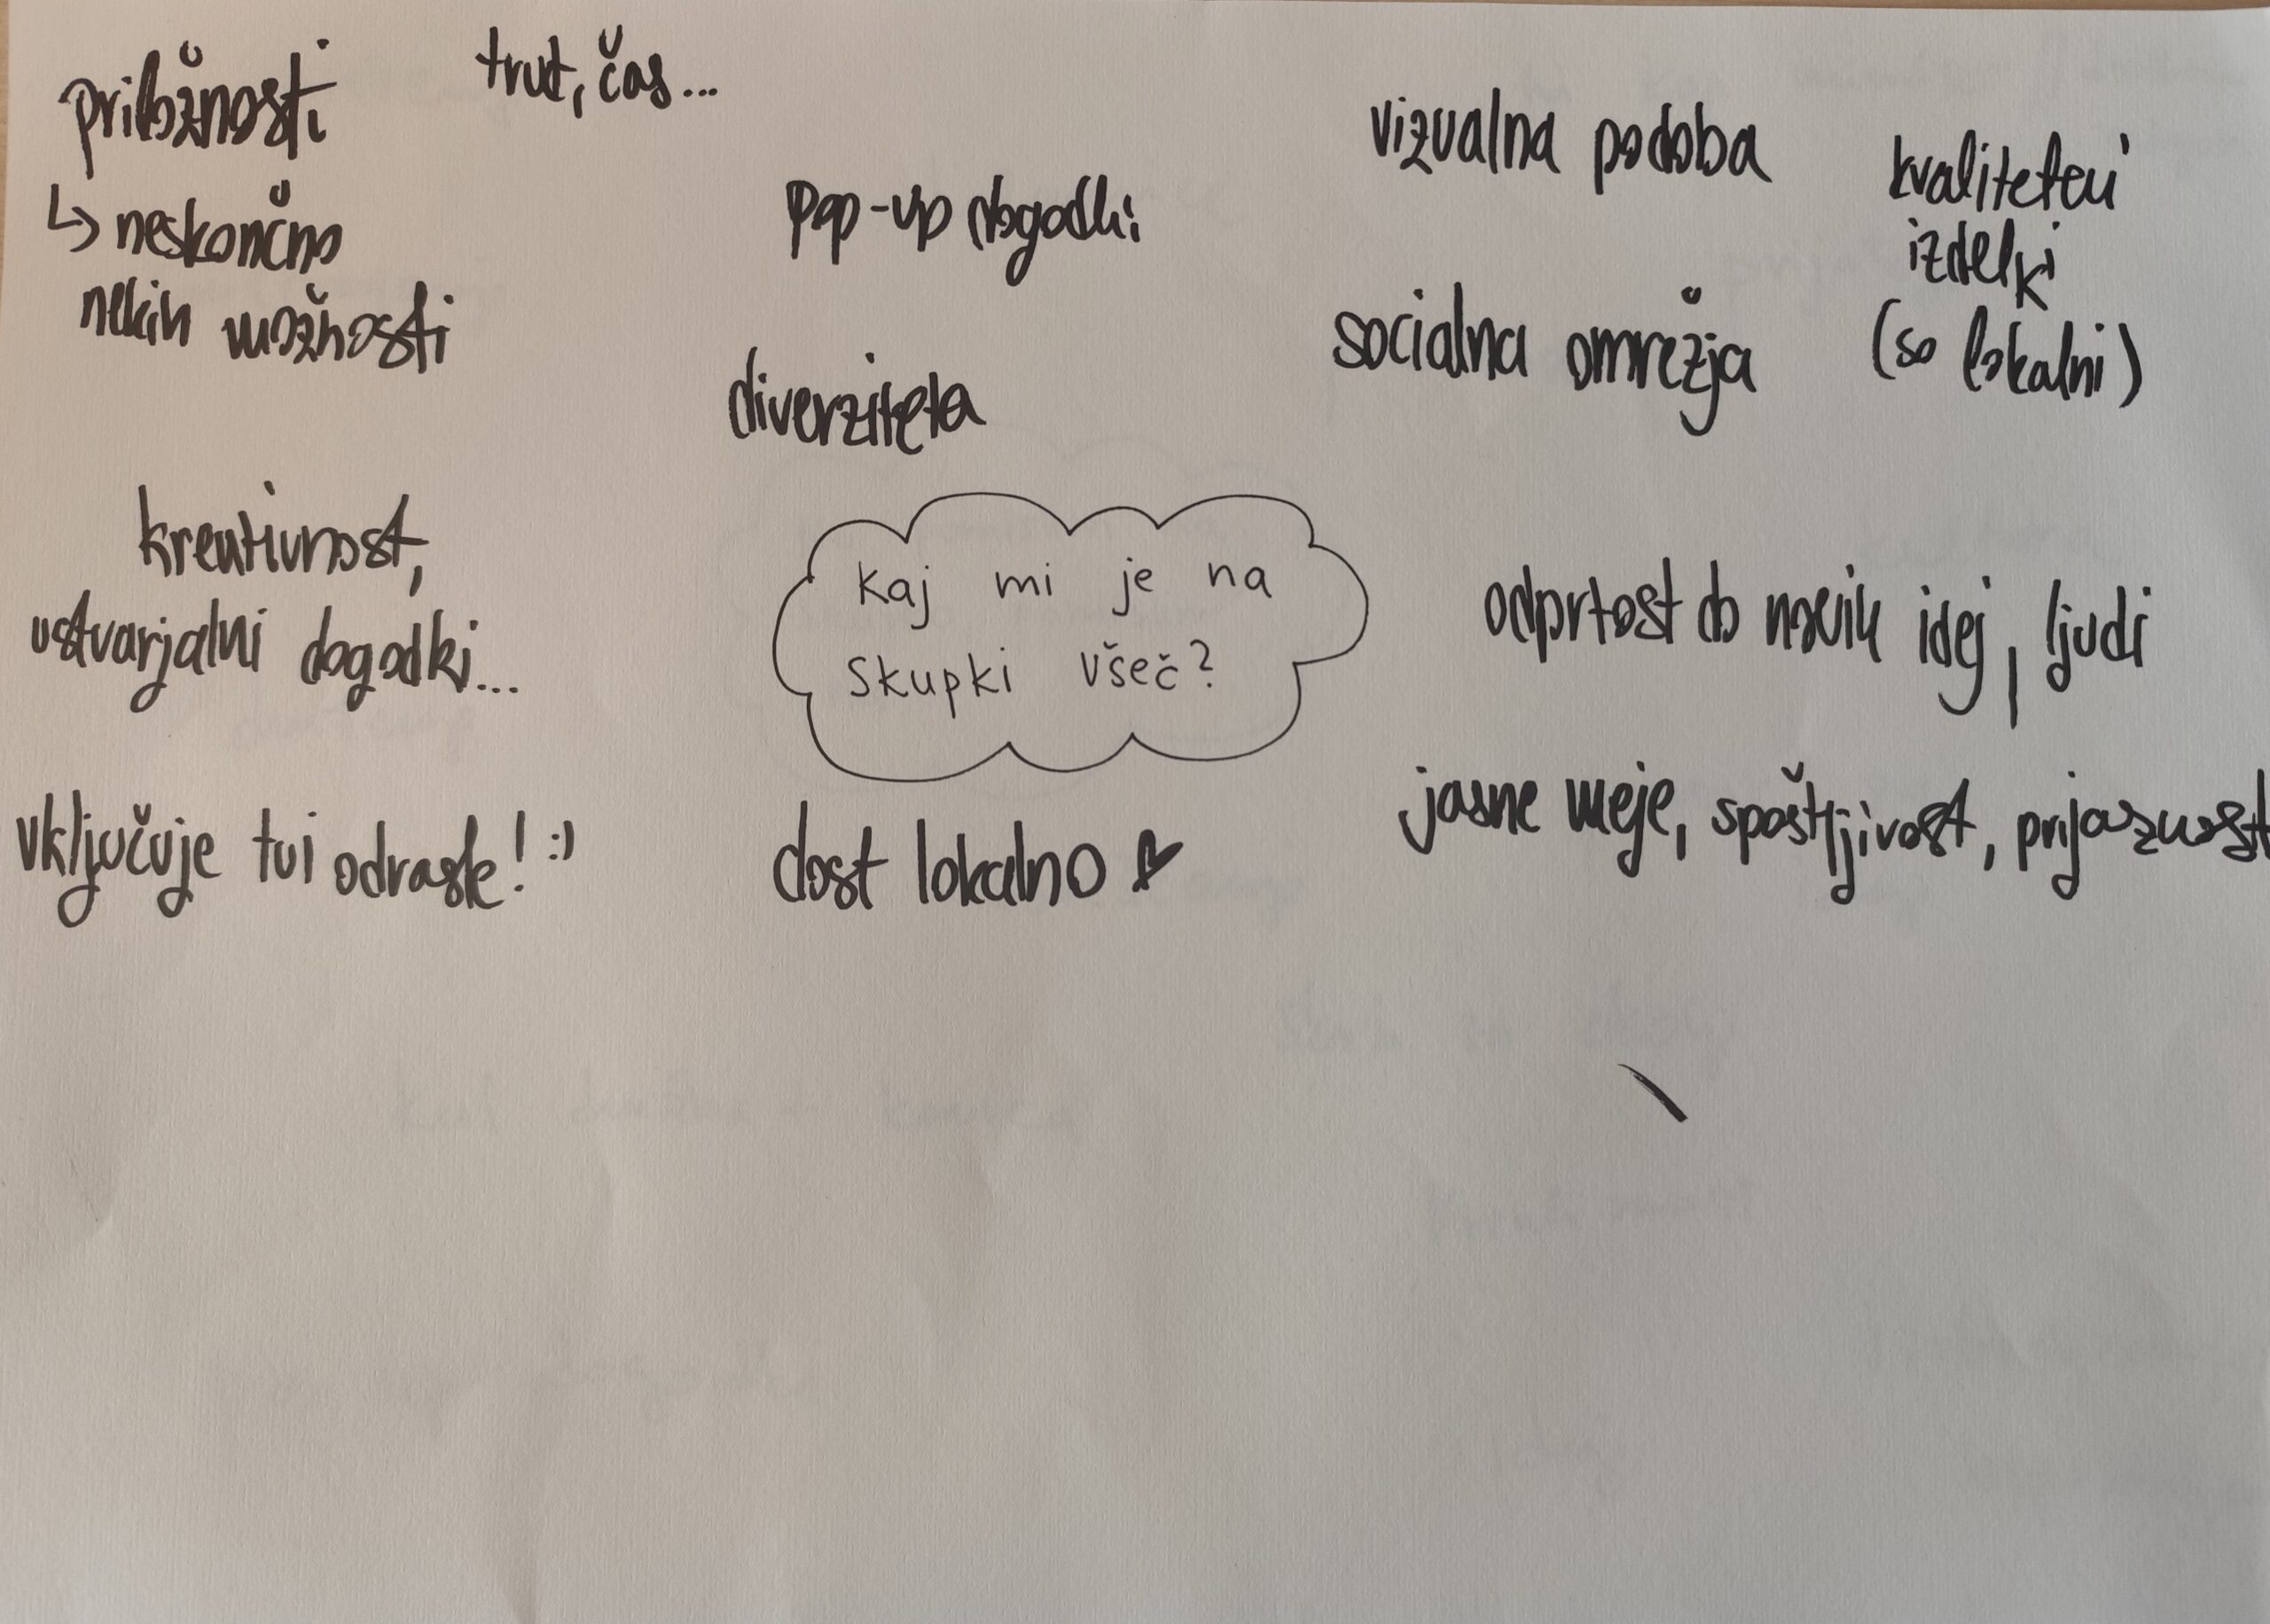 priložnosti
↳ neskončno
nekih možnosti
trud, čas...
pop-up dogodki
diverziteta
vizualna podoba
socialna omrežja
kvalitetni
izdelki
(so lokalni)
kreativnost,
ustvarjalni dogodki...
Kaj mi je na
Skupki všeč?
odprtost do novih idej, ljudi
jasne meje, spoštljivost, prijaznost
vključuje tui odrasle! :)
dost lokalno ♥